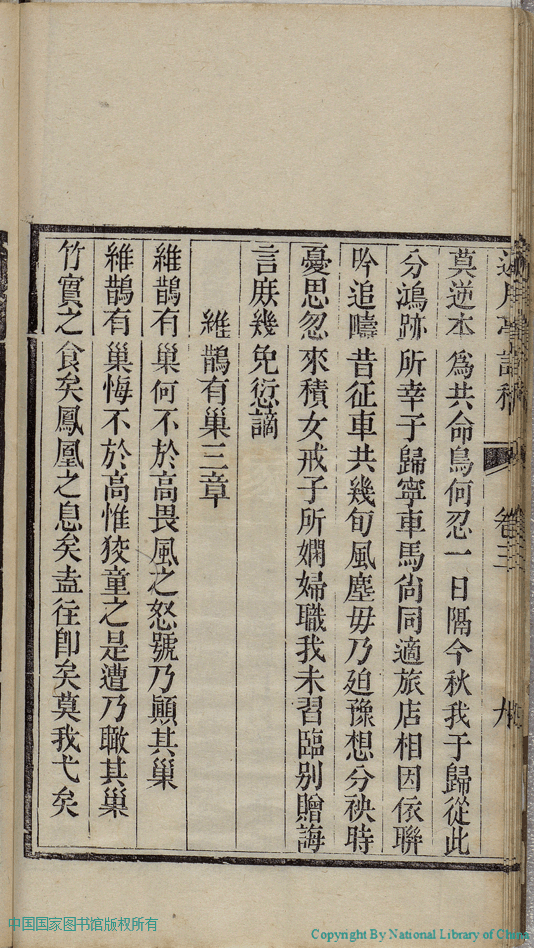 卷三
莫逆本為共命鳥何忍一日隔今秋我于歸從此
分鴻跡所幸子歸寧車馬尙同適旅店相因依聯
吟追疇昔征車共幾旬風塵毋乃廹豫想分袂時
憂思忽來積女戒子所嫻婦職我未習臨別贈誨
言庶幾免愆謫
維鵲有巢三章
維鵲有巢何不於高畏風之怒號乃顚其巢
維鵲有巢悔不於高惟狡童之是遭乃瞰其巢
竹實之食矣鳳凰之息矣盍往卽矣莫我弋矣
中国国家图书馆版权所有
Copyright By National Library of China